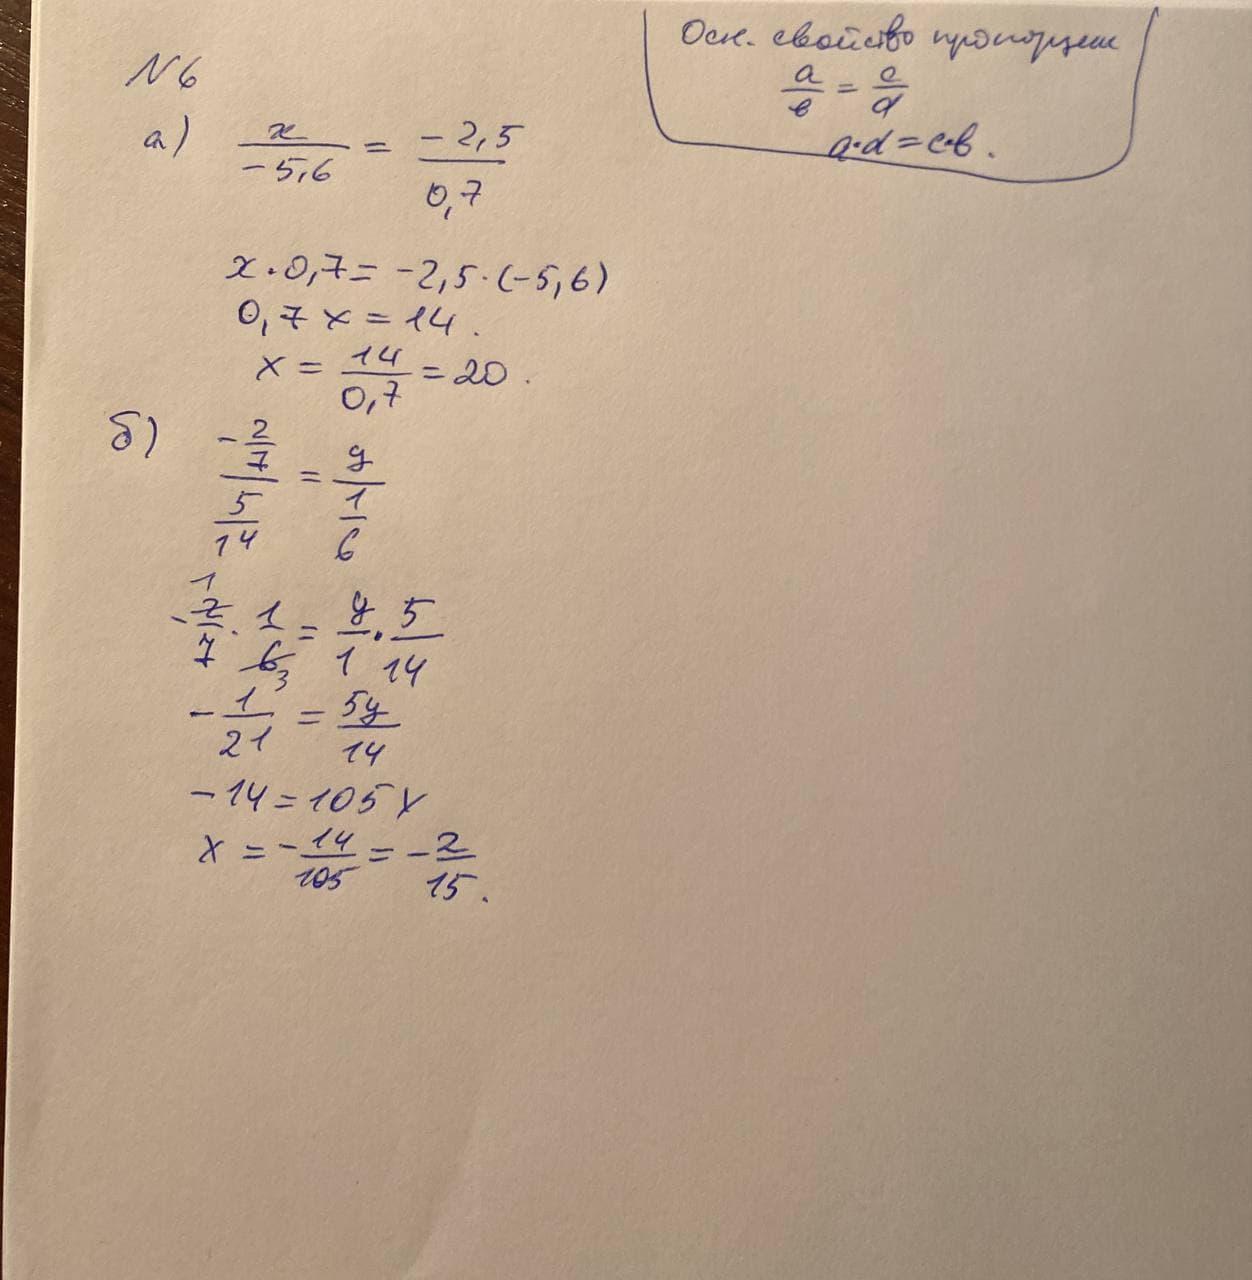 Осн. свойство пропорции
a/в = c/d
a·d=c·в.
N6
а) x/-5,6 = -2,5/0,7
x·0,7=-2,5·(-5,6)
0,7x=14.
x=14/0,7=20.
б) (-2/7)/(5/14) = y/(1/6)
1
-2/7·1/6 = y/1·5/14
3
-1/21 = 5y/14
-14=105x
x=-14/105=-2/15.